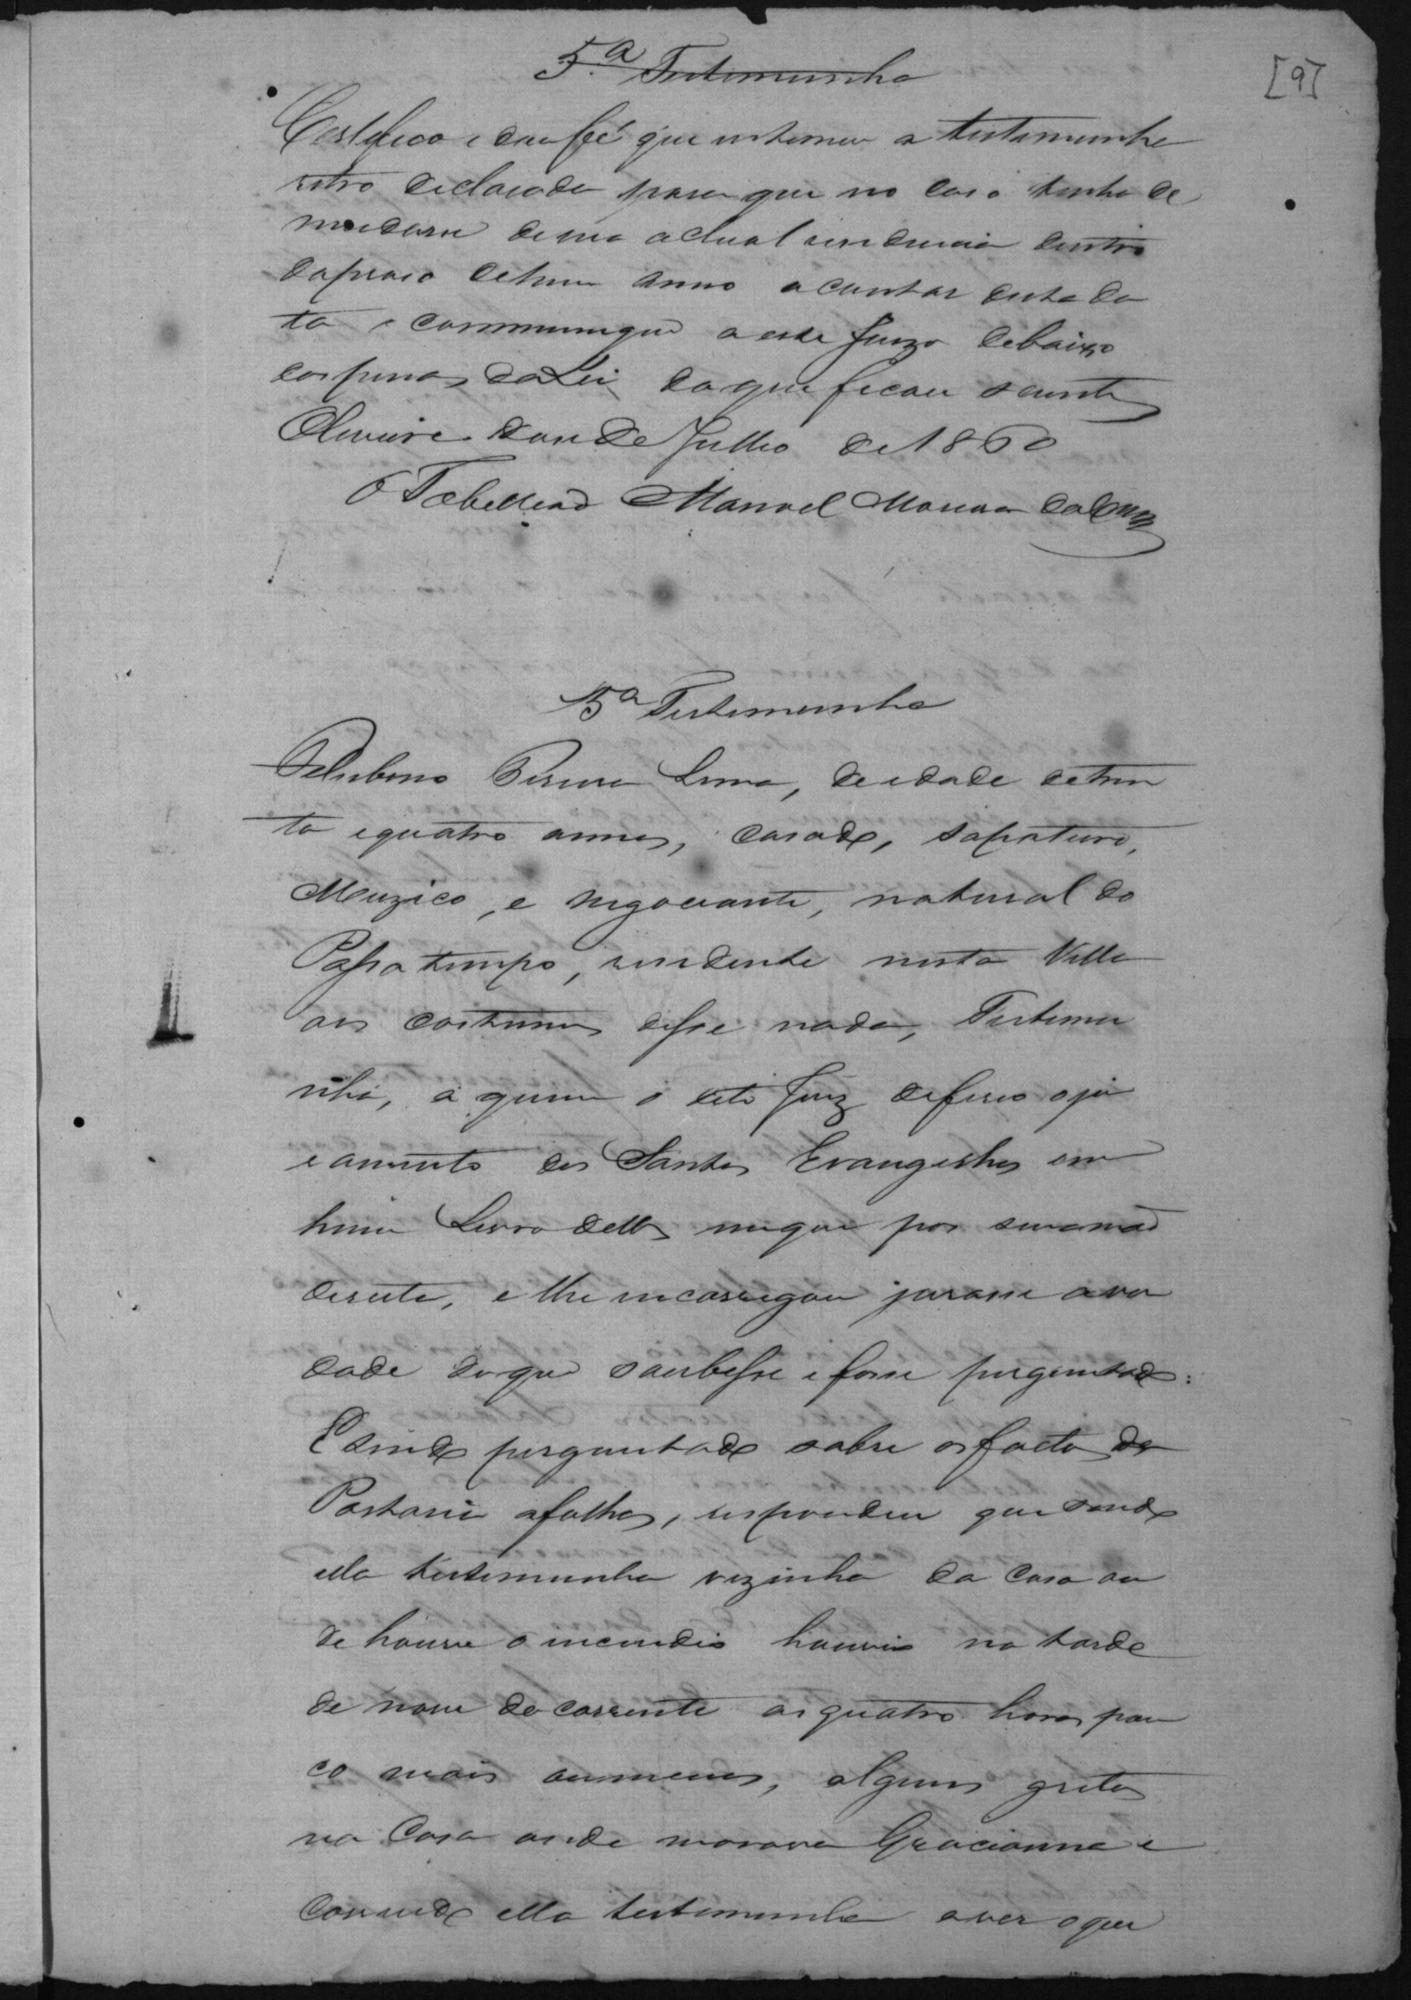 5.ª Testemunha
[9]
Certefico e dou fé que intemei a testemunha
retro declarada para que no caso tenha de
mudarse de sua actual residencia dentro
do praso de hum anno a contar desta da
ta o communique a este Juizo debaixo
das penas da Lei do que ficou sciente
Oliveira doze de Julho de 1860
O Tabelliaõ Manoel da Cruz
5ª Testemunha
Pereira Lima, de idade de trin
ta e quatro annos, casado, sapateiro,
Muzico, e negociante, natural do
Passatempo, residente nesta Villa
aos costumes disse nada, Testemu
nha, a quem o dito Juiz deferio o ju
ramento dos Santos Evangelhos em
hum Livro delles em que pos sua maõ
direita, e lhe encarregou jurasse a ver
dade do que soubesse e fosse perguntado:
E sendo perguntado sobre os factos da
Portaria a folhas, respondeu que sendo
ella testemunha vizinha da casa on
de houve o incendio houvio na tarde
de nove do corrente as quatro horas pou
co mais ou menos, alguns gritos
na Casa onde morava Gracianna e
correndo ella testemunha a ver o que